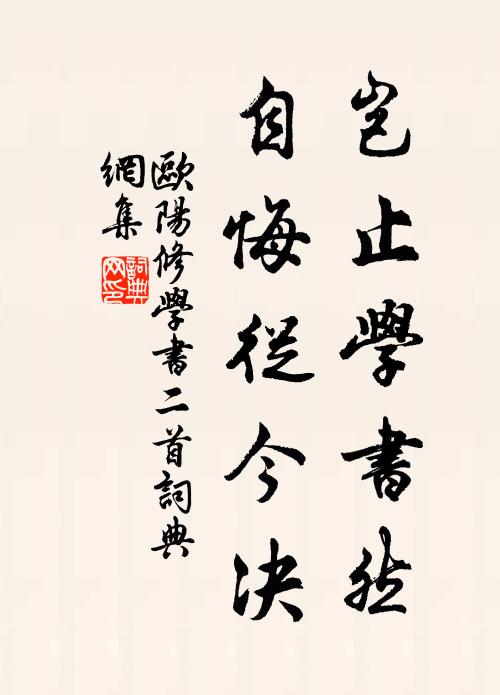 豈止學書然
自悔從今決
歐陽修學書二首詞典
網集
詞典網印